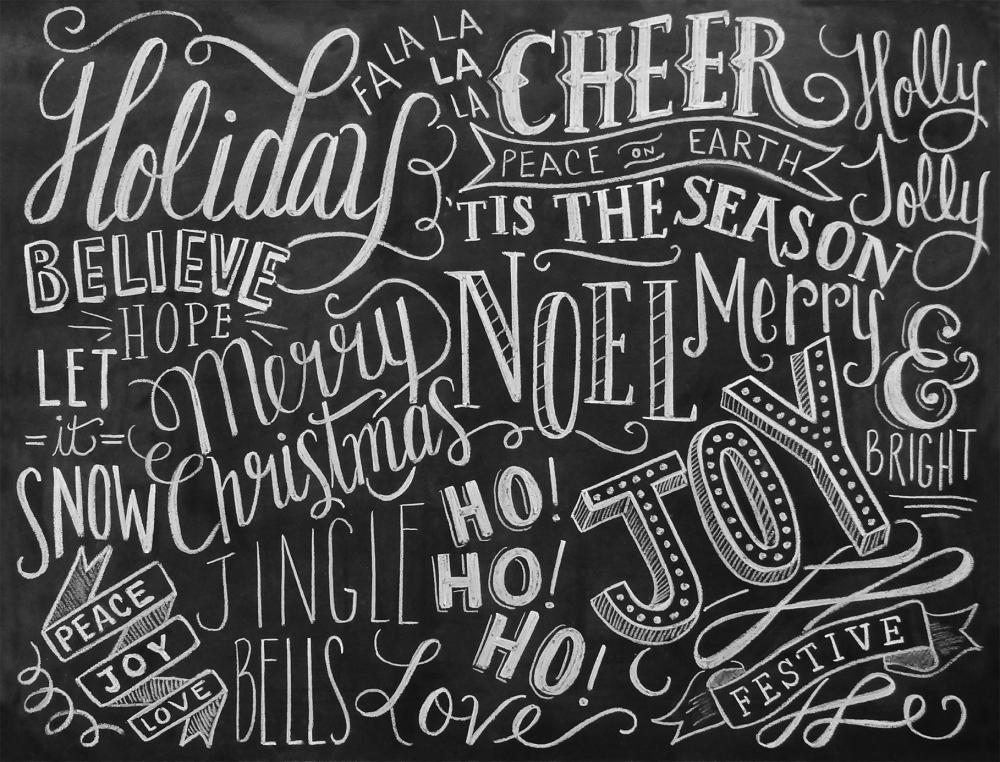 Holiday
FA LA LA
LA LA
CHEER
PEACE ON EARTH
'TIS THE SEASON
Holly
Jolly
BELIEVE
HOPE
LET
it
SNOW
Merry
Christmas
NOEL
Merry
&
BRIGHT
JOY
HO!
HO!
HO!
JINGLE
BELLS
PEACE
JOY
LOVE
Love
FESTIVE